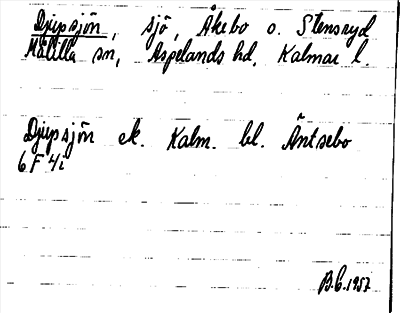 Djupsjön, sjö, Åkebo o. Stensryd
Målilla sn, Aspelands hd, Kalmar l.
Djupsjön ek. Kalm. bl. Äntsebo
6 F 4i
B.G. 1957